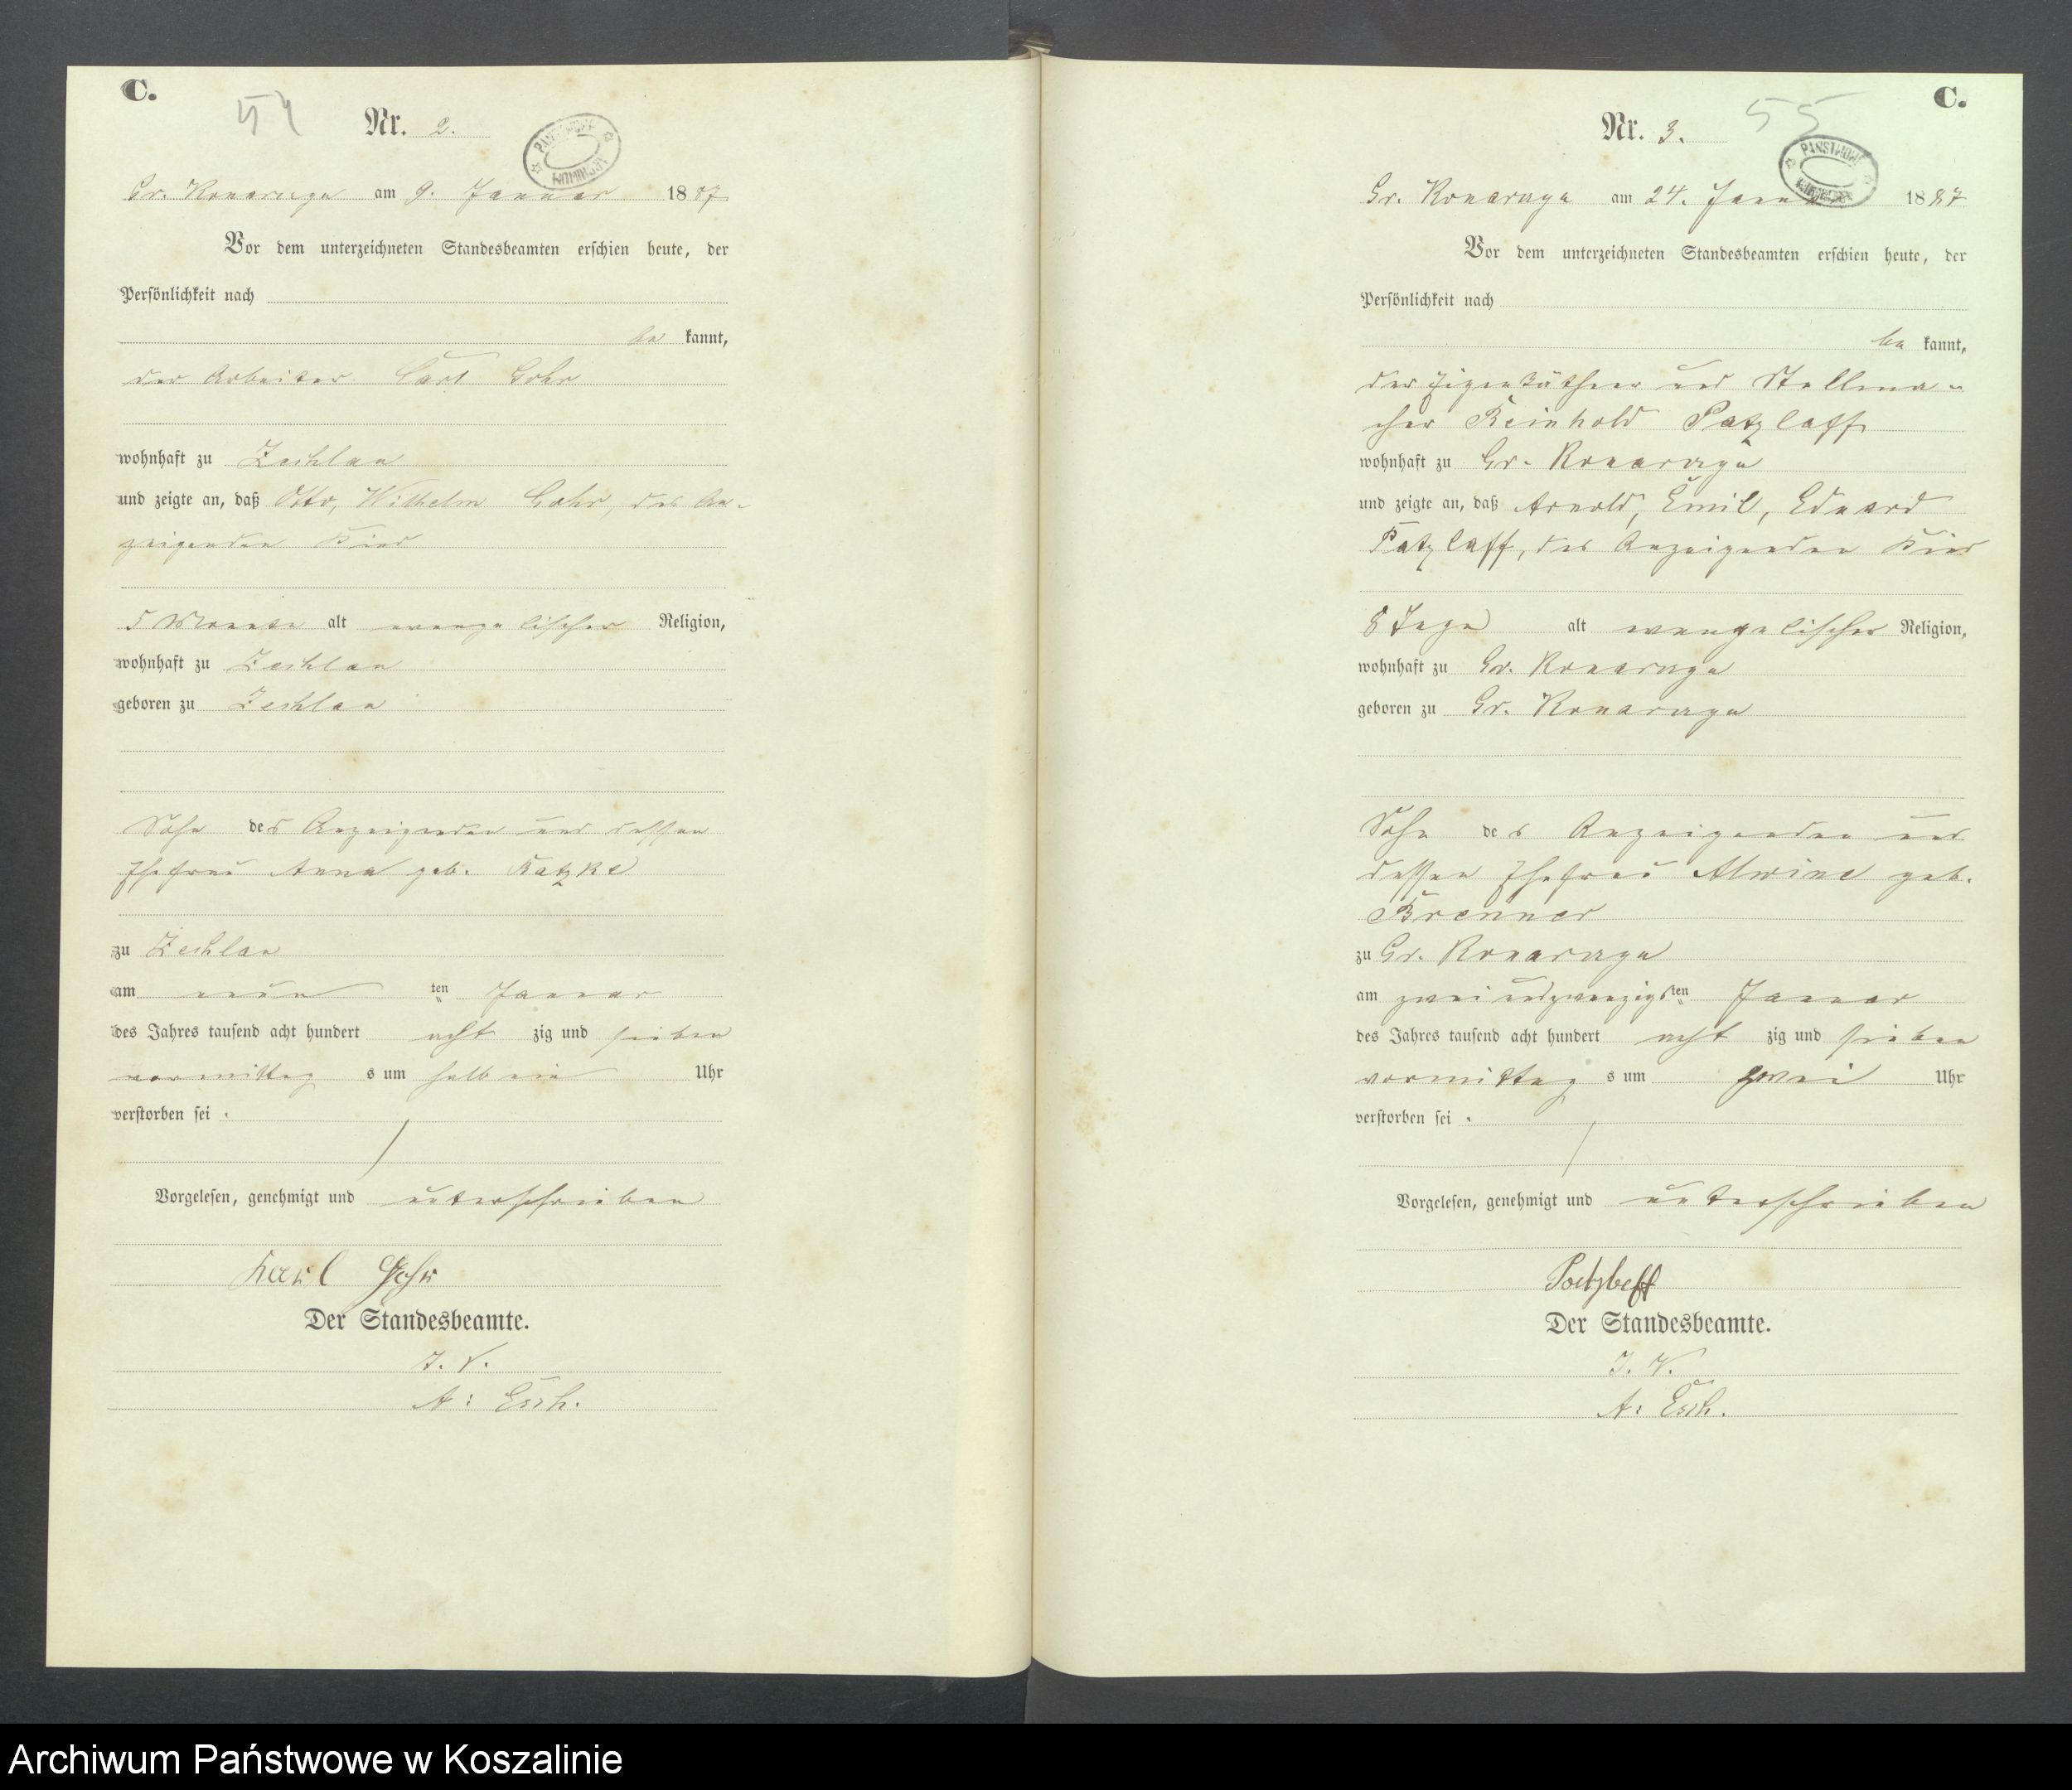 C.
54
Nr. 2.
Gr. Konarzyn am 9. Januar 1887
Vor dem unterzeichneten Standesbeamten erschien heute, der
Persönlichkeit nach
be kannt,
der Arbeiter Carl Gohr
wohnhaft zu Zechlau
und zeigte an, daß Otto, Wilhelm Gohr, des An-
zeigenden Kind
5 Monate alt evangelischer Religion,
wohnhaft zu Zechlau
geboren zu Zechlau
Sohn des Anzeigenden und dessen
Ehefrau Anna geb. Katzke
zu Zechlau
am neun ten Januar
des Jahres tausend acht hundert acht zig und sieben
vormittag s um halb ein Uhr
verstorben sei.
Vorgelesen, genehmigt und unterschrieben
Karl Gohr
Der Standesbeamte.
I. V.
A: Esch.
C.
55
Nr. 3.
PANSTWOWE
Gr. Konarzyn am 24. Januar 1887
Vor dem unterzeichneten Standesbeamten erschien heute, der
Persönlichkeit nach
be kannt,
der Eigenthümer und Stellma-
cher Reinhold Patzlaff
wohnhaft zu Gr. Konarzyn
und zeigte an, daß Arnold, Emil, Eduard
Patzlaff, des Anzeigenden Kind
8 Tage alt evangelischer Religion,
wohnhaft zu Gr. Konarzyn
geboren zu Gr. Konarzyn
Sohn des Anzeigenden und
dessen Ehefrau Alwine geb.
Brenner
zu Gr. Konarzyn
am zwei und zwanzigsten Januar
des Jahres tausend acht hundert acht zig und sieben
vormittag s um zwei Uhr
verstorben sei.
Vorgelesen, genehmigt und unterschrieben
Patzlaff
Der Standesbeamte.
I. V.
A: Esch.
Archiwum Państwowe w Koszalinie